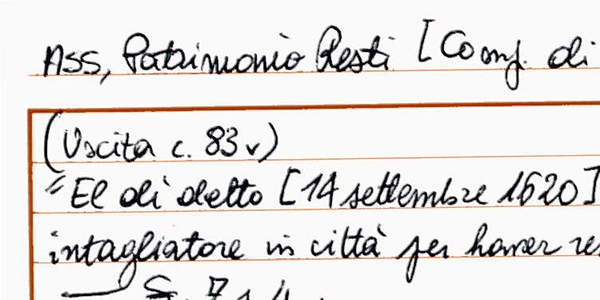 Ass, Patrimonio Resti [Comp. di
(Uscita c. 83v)
"El di detto [14 settembre 1620]
intagliatore in città per haver